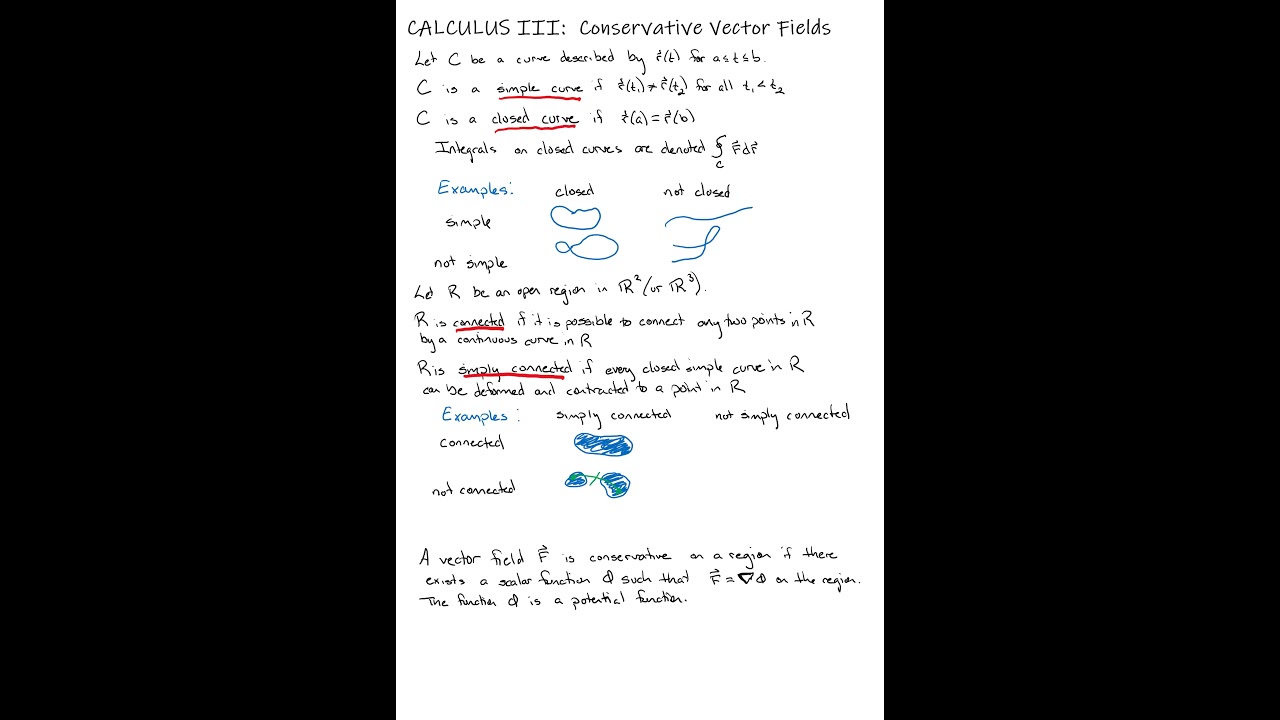 CALCULUS III: Conservative Vector Fields
Let C be a curve described by r⃗(t) for a≤t≤b.
C is a simple curve if r⃗(t₁)≠r⃗(t₂) for all t₁<t₂
C is a closed curve if r⃗(a)=r⃗(b)
Integrals on closed curves are denoted ∮_C F⃗dr⃗
Examples: closed not closed
simple
not simple
Let R be an open region in ℝ² (or ℝ³).
R is connected if it is possible to connect any two points in R
by a continuous curve in R
R is simply connected if every closed simple curve in R
can be deformed and contracted to a point in R
Examples: simply connected not simply connected
connected
not connected
A vector field F⃗ is conservative on a region if there
exists a scalar function φ such that F⃗=∇φ on the region.
The function φ is a potential function.